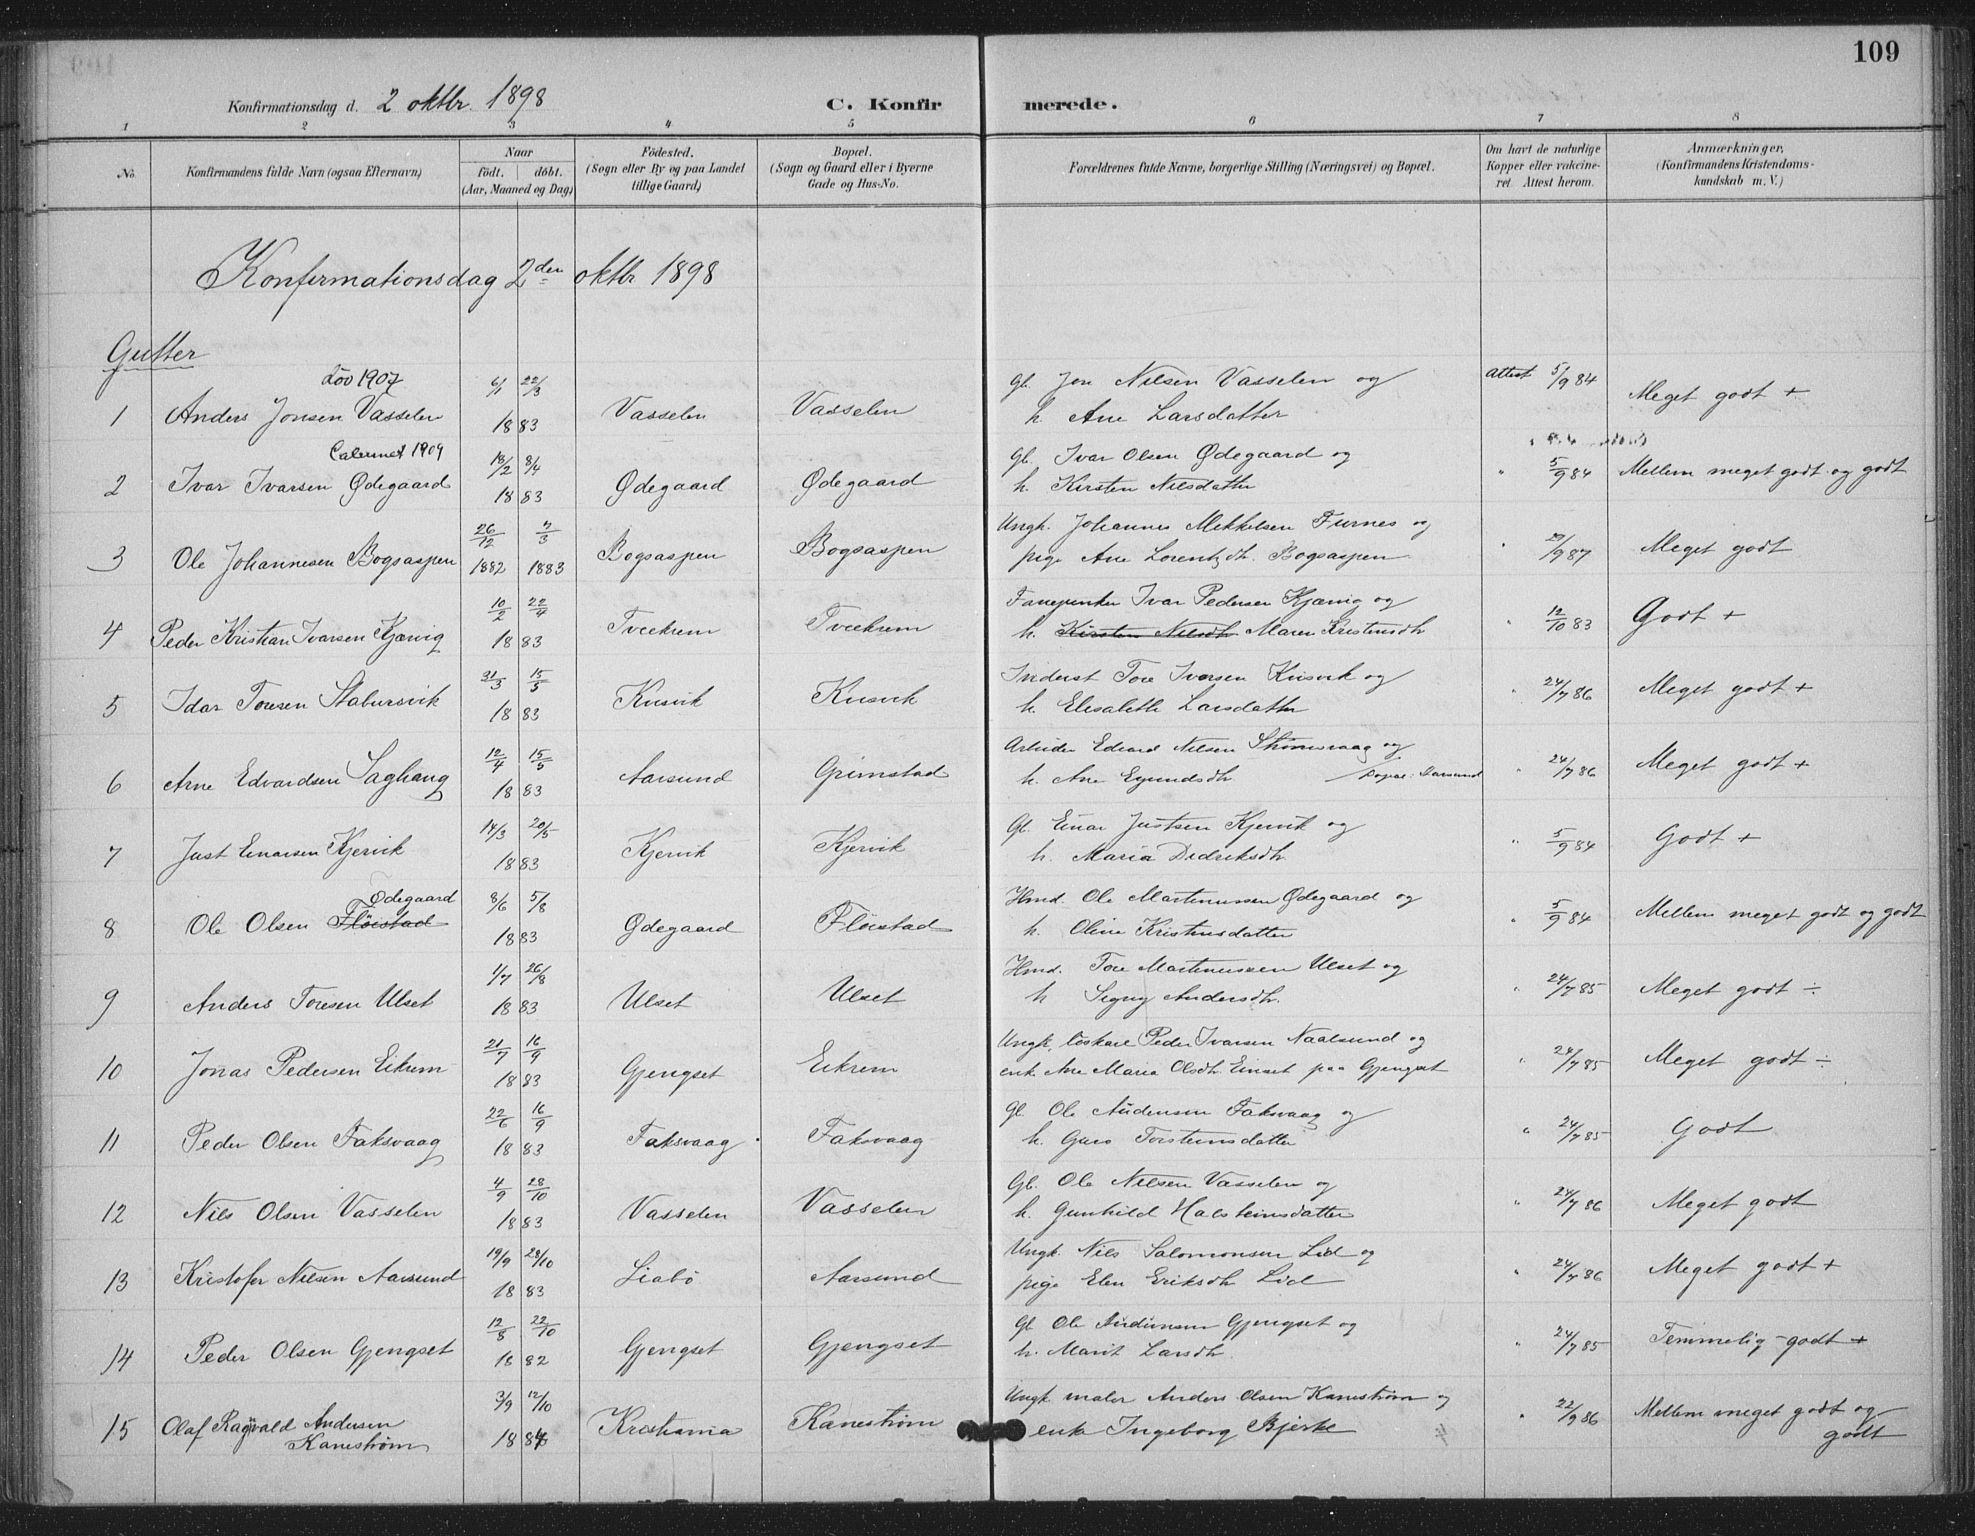 109
Konfirmationsdag d. 2 oktbr. 1898
C. Konfirmerede.
1 2 3 4 5 6 7 8
No. Konfirmandens fulde Navn (ogsaa Efternavn) Naar födt. döbt. (Aar, Maaned og Dag) Födested. (Sogn eller By og paa Landet tillige Gaard) Bopæl. (Sogn og Gaard eller i Byerne Gade og Hus-No. Forældrenes fulde Navne, borgerlige Stilling (Næringsvei) og Bopæl. Om havt de naturlige Kopper eller vakcineret. Attest herom. Anmærkninger, (Konfirmandens Kristendomskundskab m. V.)
Konfirmationsdag 2den oktbr 1898
Gutter
Löv 1907
1 Anders Jonsen Vasselen 6/1 22/3 1883 Vasselen Vasselen Gb. Jon Nilsen Vasselen og h. Ane Larsdatter attest 5/9 84 Meget godt +
1909
2 Ivar Ivarsen Ødegaard 18/2 8/4 1883 Ødegaard Ødegaard Gb. Ivar Olsen Ødegaard og h. Kirsten Nilsdatter " 5/9 84 Mellem meget godt og godt
3 Ole Johannesen Bogsaspen 26/12 1882 7/3 1883 Bogsaspen Bogsaspen Ungk. Johannes Mikkelsen Furnes og pige Ane Lorentzdtr. Bogsaspen " /9 87 Meget godt
4 Peder Kristian Ivarsen Kjævig 10/2 22/4 1883 Tveekrem Tveekrem Ivar Pedersen Kjævig og h. Kirsten Nilsdtr Maren Kristensdtr " 12/10 83 Godt +
5 Idar Toresen Stabursvik 31/3 15/5 1883 Knsvik Knsvik Inderst Tore Iversen Knsvik og h. Elisabeth Larsdatter " 24/7 86 Meget godt +
6 Arne Edvardsen Saghaug 12/4 15/5 1883 Aarsund Grimstad Arbeider Edvard Nilsen og h. Ane Eyundsdtr. / Bopæl: Aarsund " 24/7 86 Meget godt +
7 Just Einarsen Kjervik 14/3 20/5 1883 Kjervik Kjervik Gb. Einar Justsen Kjervik og h. Maria Didriksdtr. " 5/9 84 Godt +
Ødegaard
8 Ole Olsen Flöistad 8/6 5/8 1883 Ødegaard Flöistad Hmd. Ole Martinussen Ødegaard og h. Oline Kristensdatter " 5/9 84 Mellem meget godt og godt
9 Anders Toresen Ulset 1/7 26/8 1883 Ulset Ulset Hmd. Tore Martinussen Ulset og h Signy Andersdtr. " 24/7 85 Meget godt ÷
10 Jonas Pedersen Eikrem 21/7 16/9 1883 Gjengset Eikrem Ungk. löskarl Peder Ivarsen Naalsund og enk Ane Maria Olsdtr. Einset paa Gjengset " 24/7 85 Meget godt ÷
11 Peder Olsen Faksvaag 22/6 16/9 1883 Faksvaag Faksvaag Gb. Ole Audensen Faksvaag og h. Guro Torsteinsdatter " 24/7 85 Godt
12 Nils Olsen Vasselen 4/9 28/10 1883 Vasselen Vasselen Gb. Ole Nilsen Vasselen og h. Gunhild Halsteinsdatter " 24/7 86 Meget godt
13 Kristofer Nilsen Aarsund 19/9 28/10 1883 Liabö Aarsund Ungk. Nils Salomonsen Lid og pige Elen Eriksdtr Lid " 24/7 86 Meget godt +
14 Peder Olsen Gjengset 12/8 22/10 1882 Gjengset Gjengset Gb Ole Audunsen Gjengset og h. Marit Larsdtr. " 24/7 85 Temmelig godt +
15 Olaf Ragvald Andersen Kaneström 3/9 12/10 1884 Kristiania Kaneström Ungk maler Anders Olsen Kaneström og enk Ingeborg Bjerke " 22/9 86 Mellem meget godt og godt